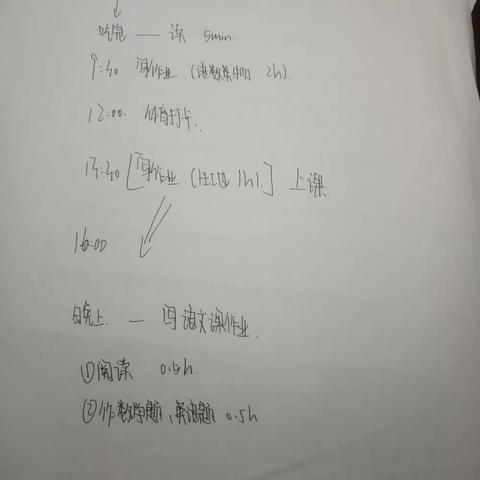 吃完 — 读 5min.
9:40 写作业 (语数英物 2h).
12:00. 体育打卡.
13:40 [写作业 (生地 1h).] 上课
16:00
晚上. — 写语文课作业.
①阅读 0.5h.
②作数学题、英语题 0.5h